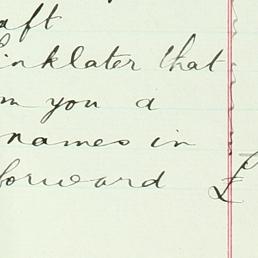 aft
inklater that
m you a
names in
forward £